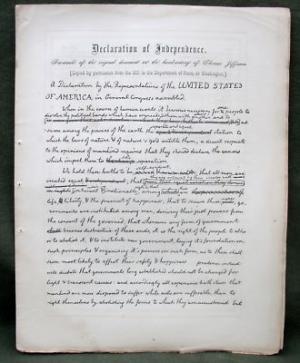 Declaration of Independence.
Facsimile of the original document in the handwriting of Thomas Jefferson.
[Copied by permission from the MS. in the Department of State, at Washington.]
A Declaration by the Representatives of the UNITED STATES
OF AMERICA, in General Congress assembled.
When in the course of human events it becomes necessary for people to
dissolve the political bands which have connected them with another, and to
-sume among the powers of the earth the station to
which the laws of nature & of nature's god entitle them, a decent respect
to the opinions of mankind requires that they should declare the causes
which impel them to the separation.
We hold these truths to be that all men are
created equal
life, & liberty, & the pursuit of happiness; that to secure these, go-
-vernments are instituted among men, deriving their just powers from
the consent of the governed; that whenever any form of government
becomes destructive of these ends, it is the right of the people to alter
or to abolish it, & to institute new government, laying it's foundation on
such principles & organising it's powers in such form, as to them shall
seem most likely to effect their safety & happiness. prudence indeed
will dictate that governments long established should not be changed for
light & transient causes: and accordingly all experience hath shewn that
mankind are more disposed to suffer while evils are sufferable, than to
right themselves by abolishing the forms to which they are accustomed. but